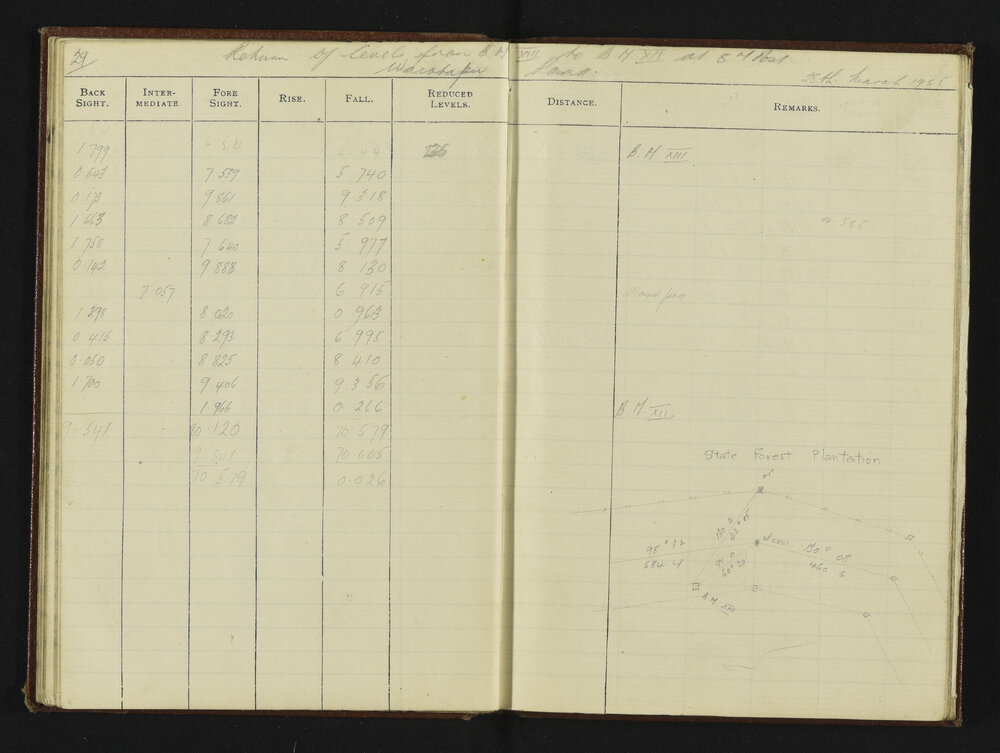 29 Return of levels from B M XIII to B M XII at 54 Post
Waiotapu Road.
28th. March 1955
BACK SIGHT. INTER-MEDIATE. FORE SIGHT. RISE. FALL. REDUCED LEVELS. DISTANCE. REMARKS.
1 799 B M XIII
0.643 7 539 5 740
0.173 9 861 9 318
1 663 8 682 8 509
1 758 7 640 5 977
0.142 9.888 8 130
7.057 6 915 Wood peg
1 298 8.020 0 963
0 415 8 293 6 995
0.050 8 825 8 410
1 700 9 406 9 356
1.966 0 266 B M XII
9.541 80.120 70 579
9 541 70.605
70 579 0.026
State Forest Plantation
98° 32
684 4
130° 08
460 6
B M XIII